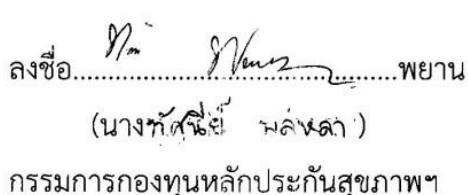 ลงชื่อ..........................................พยาน
(นางทัศนีย์ )
กรรมการกองทุนหลักประกันสุขภาพฯ